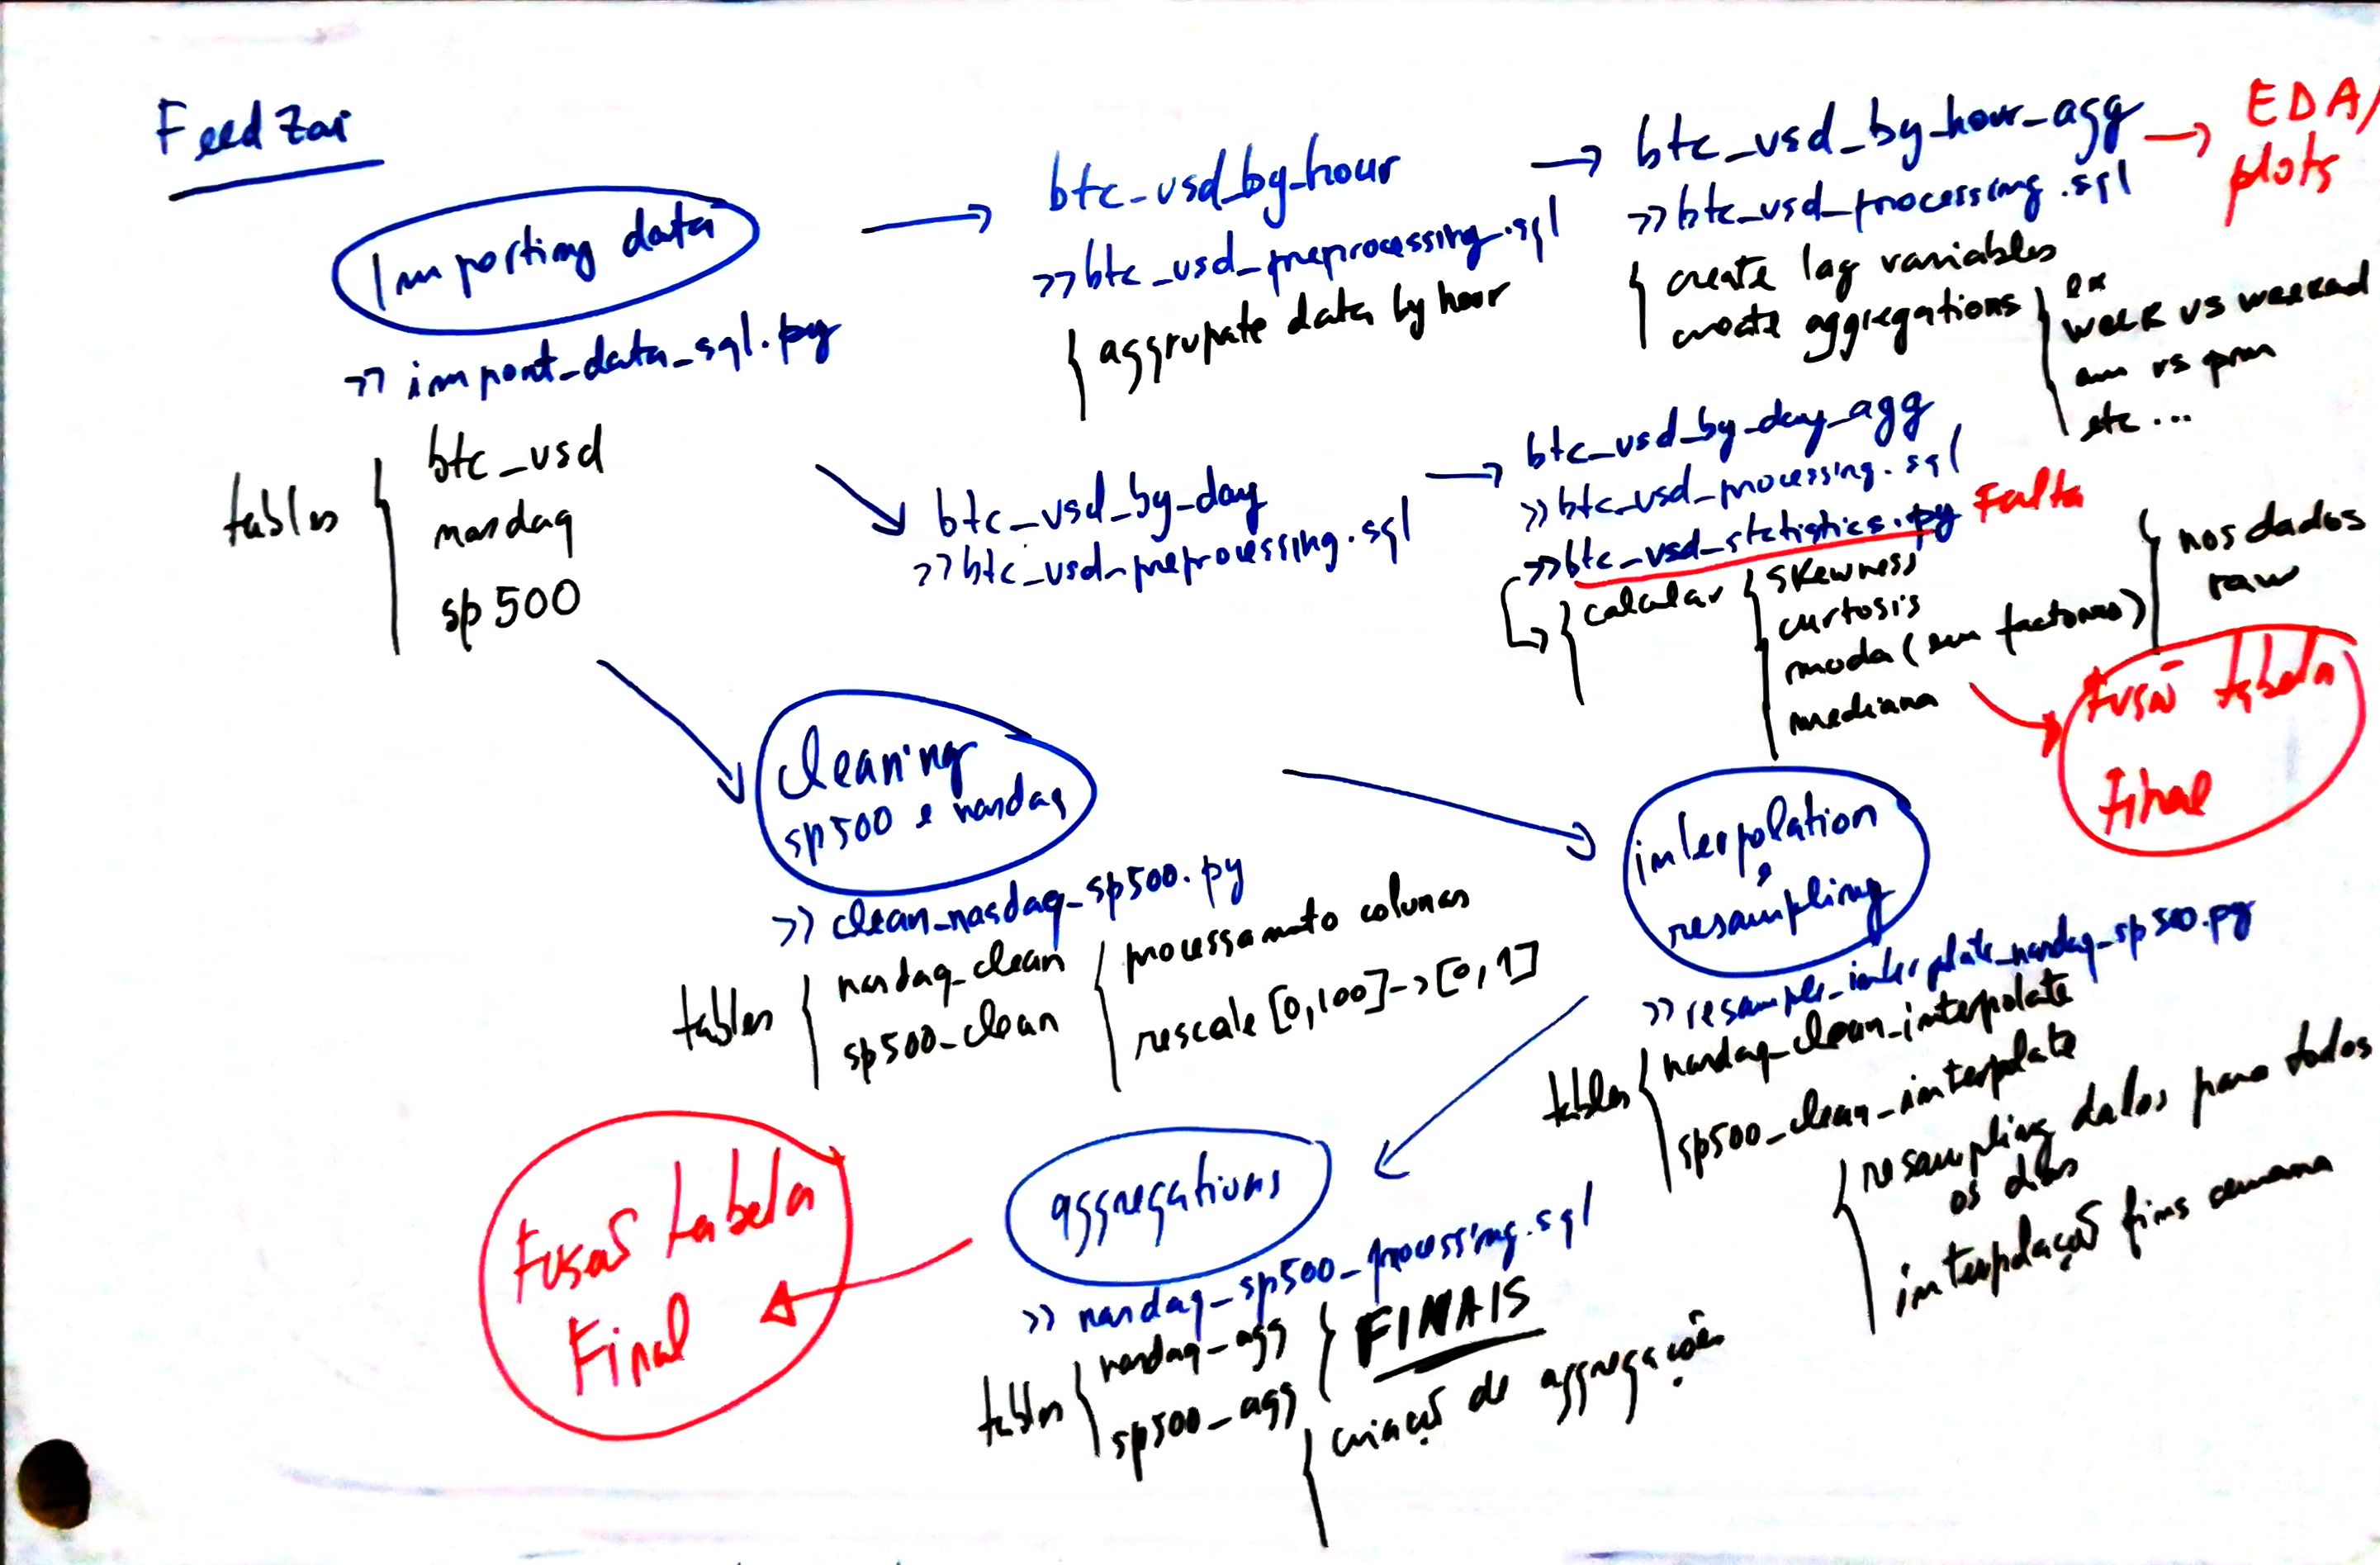 FeedZai
Importing data
>> import_data_sql.py
tables
btc_usd
nasdaq
sp500
btc_usd_by_hour
>> btc_usd_preprocessing.sql
aggrupate data by hour
btc_usd_by_hour_agg
>> btc_usd_processing.sql
create lag variables
create aggregations
ex
week vs weekend
am vs pm
etc ...
EDA/
plots
btc_usd_by_day
>> btc_usd_preprocessing.sql
btc_usd_by_day_agg
>> btc_usd_processing.sql
>> btc_usd_statistics.py Falta
calcular
skewness
curtosis
moda (sem factores)
mediana
nos dados
raw
Fusão tabela
Final
cleaning
sp500 e nasdaq
>> clean_nasdaq_sp500.py
tables
nasdaq_clean
sp500_clean
processamento colunas
rescale [0,100]->[0,1]
interpolation
e
resampling
>> resample_interpolate_nasdaq_sp500.py
tables
nasdaq_clean_interpolate
sp500_clean_interpolate
resampling dados para todos
os dias
interpolação fins semana
aggregations
>> nasdaq_sp500_processing.sql
tables
nasdaq_agg
sp500_agg
FINAIS
criação de aggregações
Fusão tabela
Final